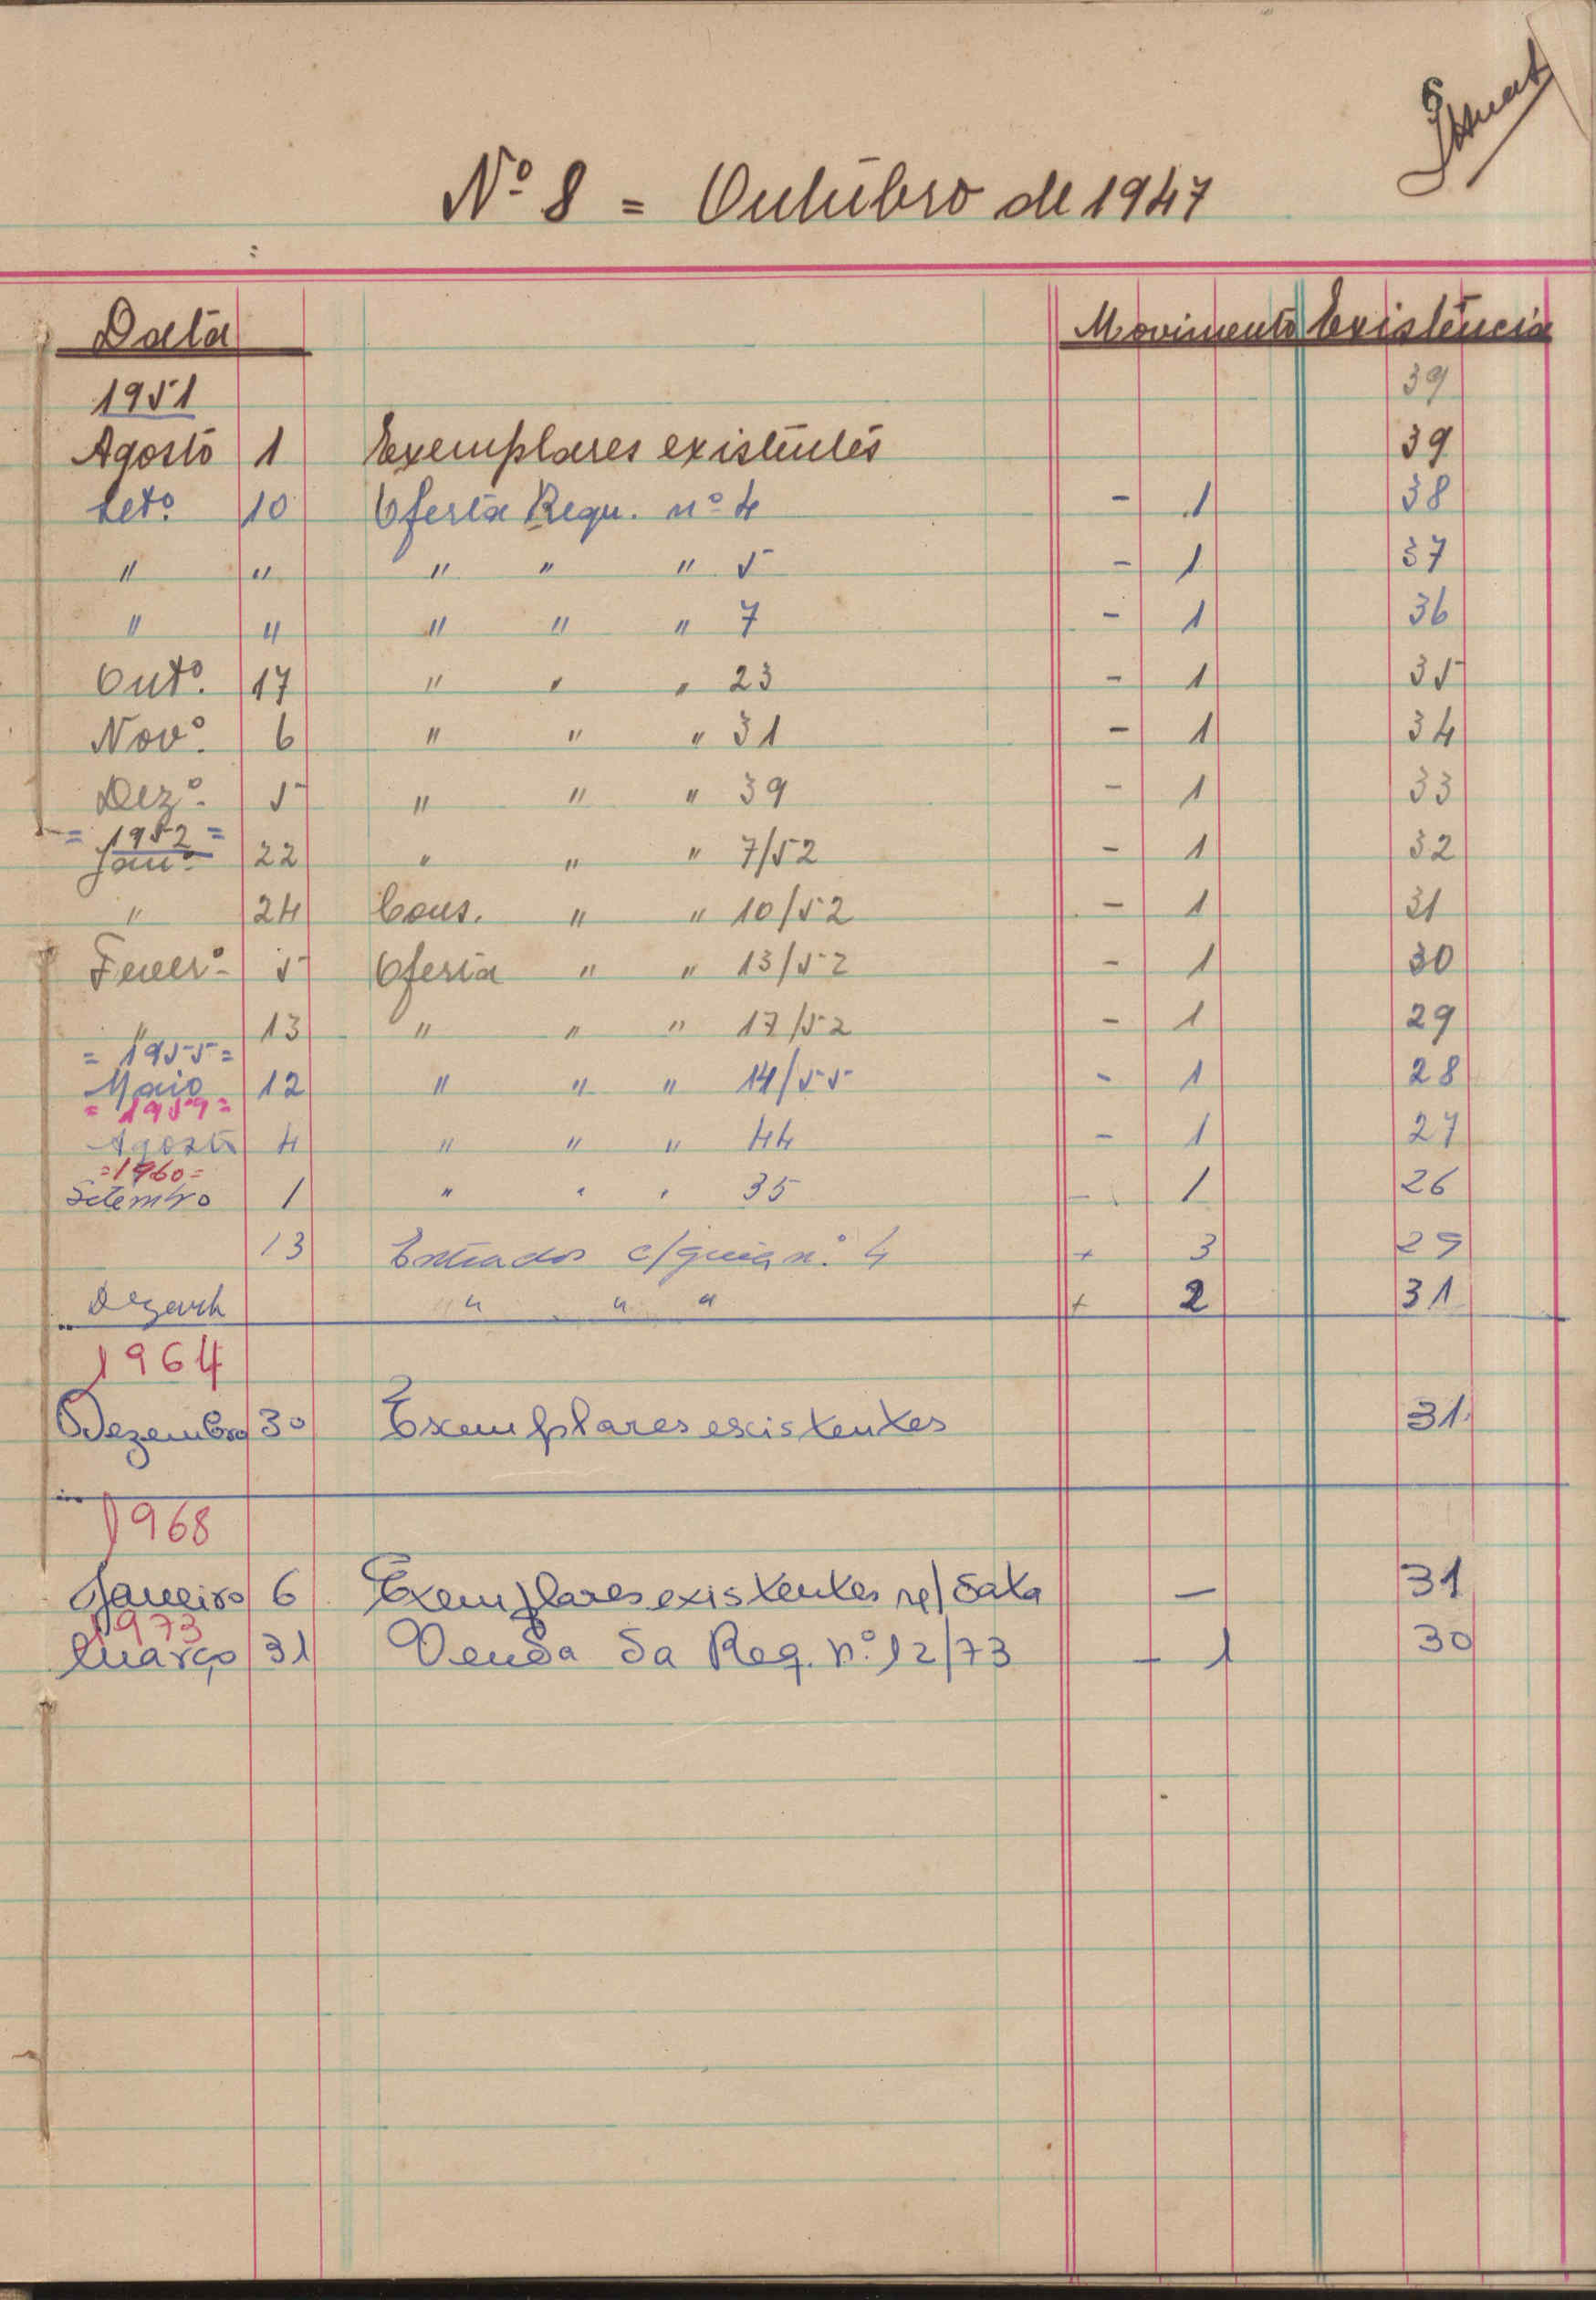 6
Nº 8 = Outubro de 1947
Data Movimento Existência
1951 39
Agosto 1 Exemplares existentes 39
Setº. 10 Oferta Requ. nº 4 - 1 38
" " " " " 5 - 1 37
" " " " " 7 - 1 36
Outº. 17 " " " 23 - 1 35
Novº. 6 " " " 31 - 1 34
Dezº. 5 " " " 39 - 1 33
= 1952 =
Janº. 22 " " " 7/52 - 1 32
" 24 Cons. " " 10/52 - 1 31
Feverº. 5 Oferta " " 13/52 - 1 30
" 13 " " " 17/52 - 1 29
= 1955 =
Maio 12 " " " 14/55 - 1 28
= 1959 =
Agosto 4 " " " 44 - 1 27
=1960=
Setembro 1 " " " 35 - 1 26
13 Entrados c/guia nº. 4 + 3 29
" " " + 2 31
1964
Dezembro 30 Exemplares existentes 31
1968
Janeiro 6 Exemplares existentes n/ data - 31
1973
Março 31 Venda da Req. nº. 12/73 - 1 30